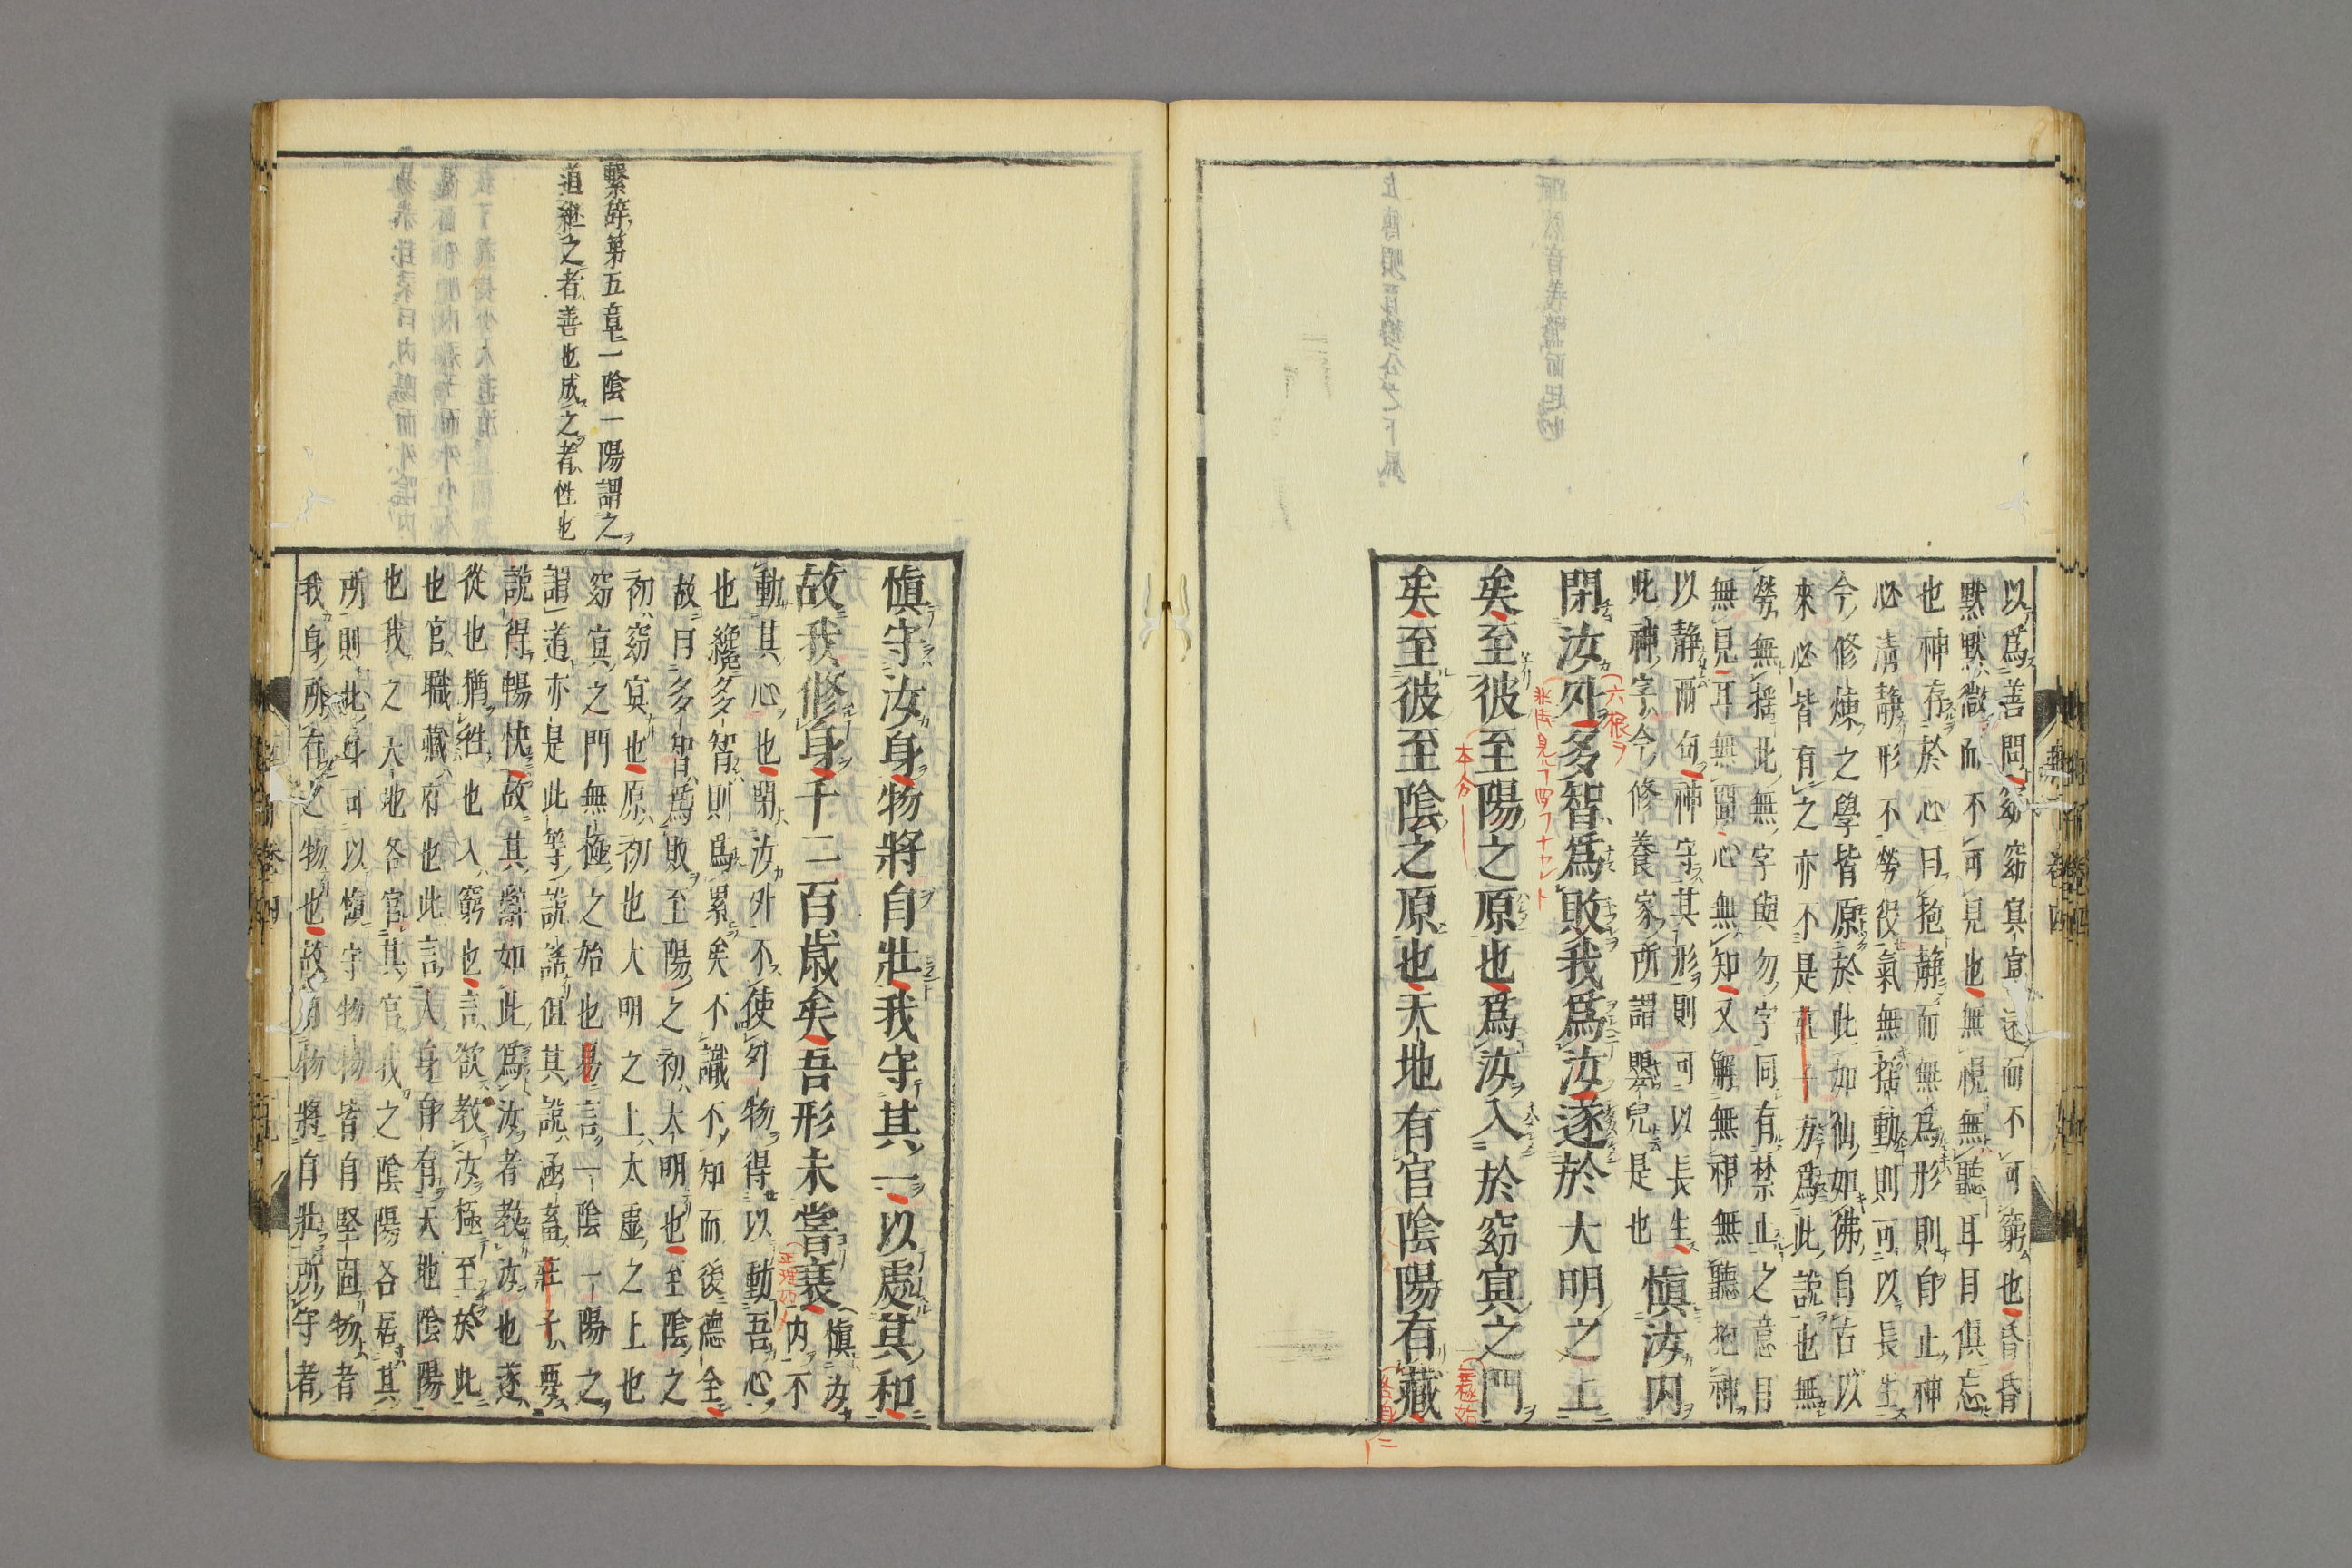 以爲善問窈窈冥冥遠而不可窮也昏昏
默默微而不可見也無視無聽耳目俱忘
也神存於心曰抱靜而無爲形則自止神
必清靜形不勞役氣無搖動則可以長生
今修煉之學皆原於此如仙如佛自古以
來必皆有之亦不是莊子方爲此說也無
勞無搖此無字與勿字同有禁止之意目
無見耳無聞心無知又解無視無聽抱神
以靜兩句神守其形則可以長生
此神字今修養家所謂嬰兒是也 慎汝內
閉汝外多智爲敗我爲汝遂於大明之上
矣至彼至陽之原也爲汝入於窈冥之門
矣至彼至陰之原也天地有官陰陽有藏
六根ヲ
本分
慎守汝身物將自壯我守其一以處其和
故我修身千二百歲矣吾形未嘗衰 慎汝
內不
動其心也閉汝外不使外物得以動吾心
也纔多智則爲累矣不識不知而後德全
故曰多智爲敗至陽之初大明也至陰之
初窈冥也原初也大明之上太虛之上也
窈冥之門無極之始也易言一陰一陽之
謂道亦是此等說話但其說涵畜莊子要
說得暢快故其辭如此爲汝者教汝也遂
從也猶往也入窮也言欲教汝極至於此
也官職藏府也此言人身自有天地陰陽
也我之天地各官其官我之陰陽各居其
所則此身可以慎守物物皆自堅固物者
我身所有之物也故曰物將自壯所守者
繫辭第五章一陰一陽謂之
道繼之者善也成之者性也